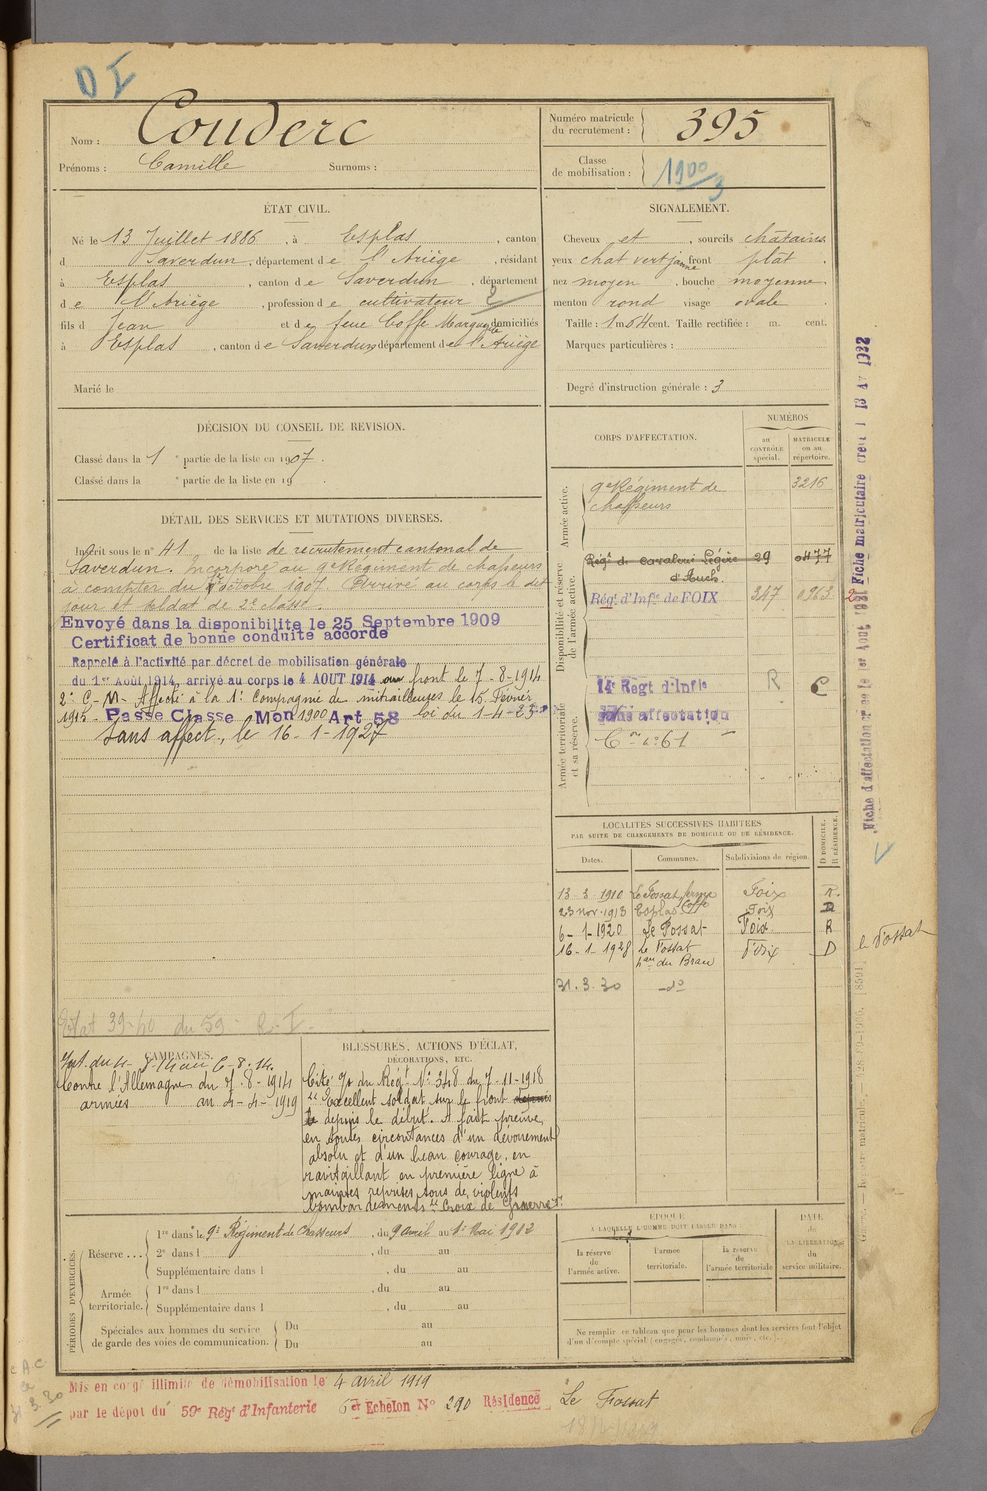 D I
Nom : Couderc
Prénoms : Camille Surnoms :
Numéro matricule du recrutement : 395
Classe de mobilisation : 1900
3
ÉTAT CIVIL.
Né le 13 Juillet 1886, à Esplas, canton
d Saverdun, département de l'Ariège, résidant
à Esplas, canton de Saverdun, département
de l'Ariège, profession de cultivateur 2
fils d Jean et de feue Coffe Marguerite domiciliés
à Esplas, canton de Saverdun département de l'Ariège
Marié le
SIGNALEMENT.
Cheveux et, sourcils châtains
yeux chat vert jaune front plat.
nez moyen, bouche moyenne
menton rond visage ovale
Taille : 1 m 54 cent. Taille rectifiée : m. cent.
Marques particulières :
Degré d'instruction générale : 3
DÉCISION DU CONSEIL DE REVISION.
Classé dans la 1e partie de la liste en 1907.
Classé dans la e partie de la liste en 19 .
DÉTAIL DES SERVICES ET MUTATIONS DIVERSES.
Inscrit sous le n° 41 de la liste de recrutement cantonal de
Saverdun. Incorporé au 9e Régiment de chasseurs
à compter du 1er octobre 1907 Arrivé au corps le dit
jour et soldat de 2e classe.
Envoyé dans la disponibilité le 25 Septembre 1909
Certificat de bonne conduite accordé
Rappelé à l'activité par décret de mobilisation générale
du 1er Août 1914, arrivé au corps le 4 AOUT 1914 au front le 7-8-1914
2e C-M- Affecté à la 1e Compagnie de mitrailleuses le 15 Février
1915- Passe Classe Mon 1900 Art 58 loi du 1-4-23
Sans affect., le 16-1-1927
CORPS D'AFFECTATION.
NUMÉROS
AU CONTRÔLE spécial.
MATRICULE ou au répertoire.
Armée active.
9e Régiment de chasseurs 3216
Disponibilité et réserve de l'armée active.
Régt de cavalerie Légère d'Auch. 29 0477
Régt d'Infie de FOIX 347 0963
Armée territoriale et sa réserve.
14e Régt d'Infie R C
Sans affectation
Con n° 61
LOCALITÉS SUCCESSIVES HABITÉES
PAR SUITE DE CHANGEMENTS DE DOMICILE OU DE RÉSIDENCE.
Dates. Communes. Subdivisions de région. D DOMICILE. R RÉSIDENCE.
13-3-1910 Le Fossat ferme Coffe Foix R.
23 nov. 1913 Esplas Foix D
6-1-1920 Le Fossat Foix R
16-1-1928 Le Fossat hau du Brau Foix D
31.3.30 -do-
le Fossat
Fiche matriculaire créée l 13 Av 1932
Fiche d'affectation le 1er Août 1931
Etat 39-40 du 59- R.I.
CAMPAGNES.
Int. du 4-8-14 au 6-8-14.
Contre l'Allemagne du 7-8-1914
armées au 4-4-1919
BLESSURES, ACTIONS D'ÉCLAT,
DÉCORATIONS, ETC.
Cité o/ du Régt N° 348 du 7-11-1918
"Excellent soldat sur le front depuis
le depuis le début. A fait preuve,
en toutes circonstances d'un dévouement
absolu et d'un beau courage, en
ravitaillant en première ligne à
maintes reprises sous de violents
bombardements" Croix de Guerre
PÉRIODES D'EXERCICES.
Réserve...
1re dans le 9e Régiment de Chasseurs, du 9 avril au 1er Mai 1912
2e dans l , du au
Supplémentaire dans l , du au
Armée territoriale.
1re dans l , du au
Supplémentaire dans l , du au
Spéciales aux hommes du service de garde des voies de communication.
Du au
Du au
ÉPOQUE
À LAQUELLE L'HOMME DOIT PASSER DANS :
la réserve de l'armée active.
l'armée territoriale.
la réserve de l'armée territoriale
DATE de LA LIBÉRATION du service militaire.
Ne remplir ce tableau que pour les hommes dont les services font l'objet
d'un décompte spécial (engagés, condamnés, omis, etc.).
Mis en congé illimité de démobilisation le 4 avril 1919
par le dépôt du 59e Régt d'Infanterie 6e Echelon N° 290 Résidence Le Fossat